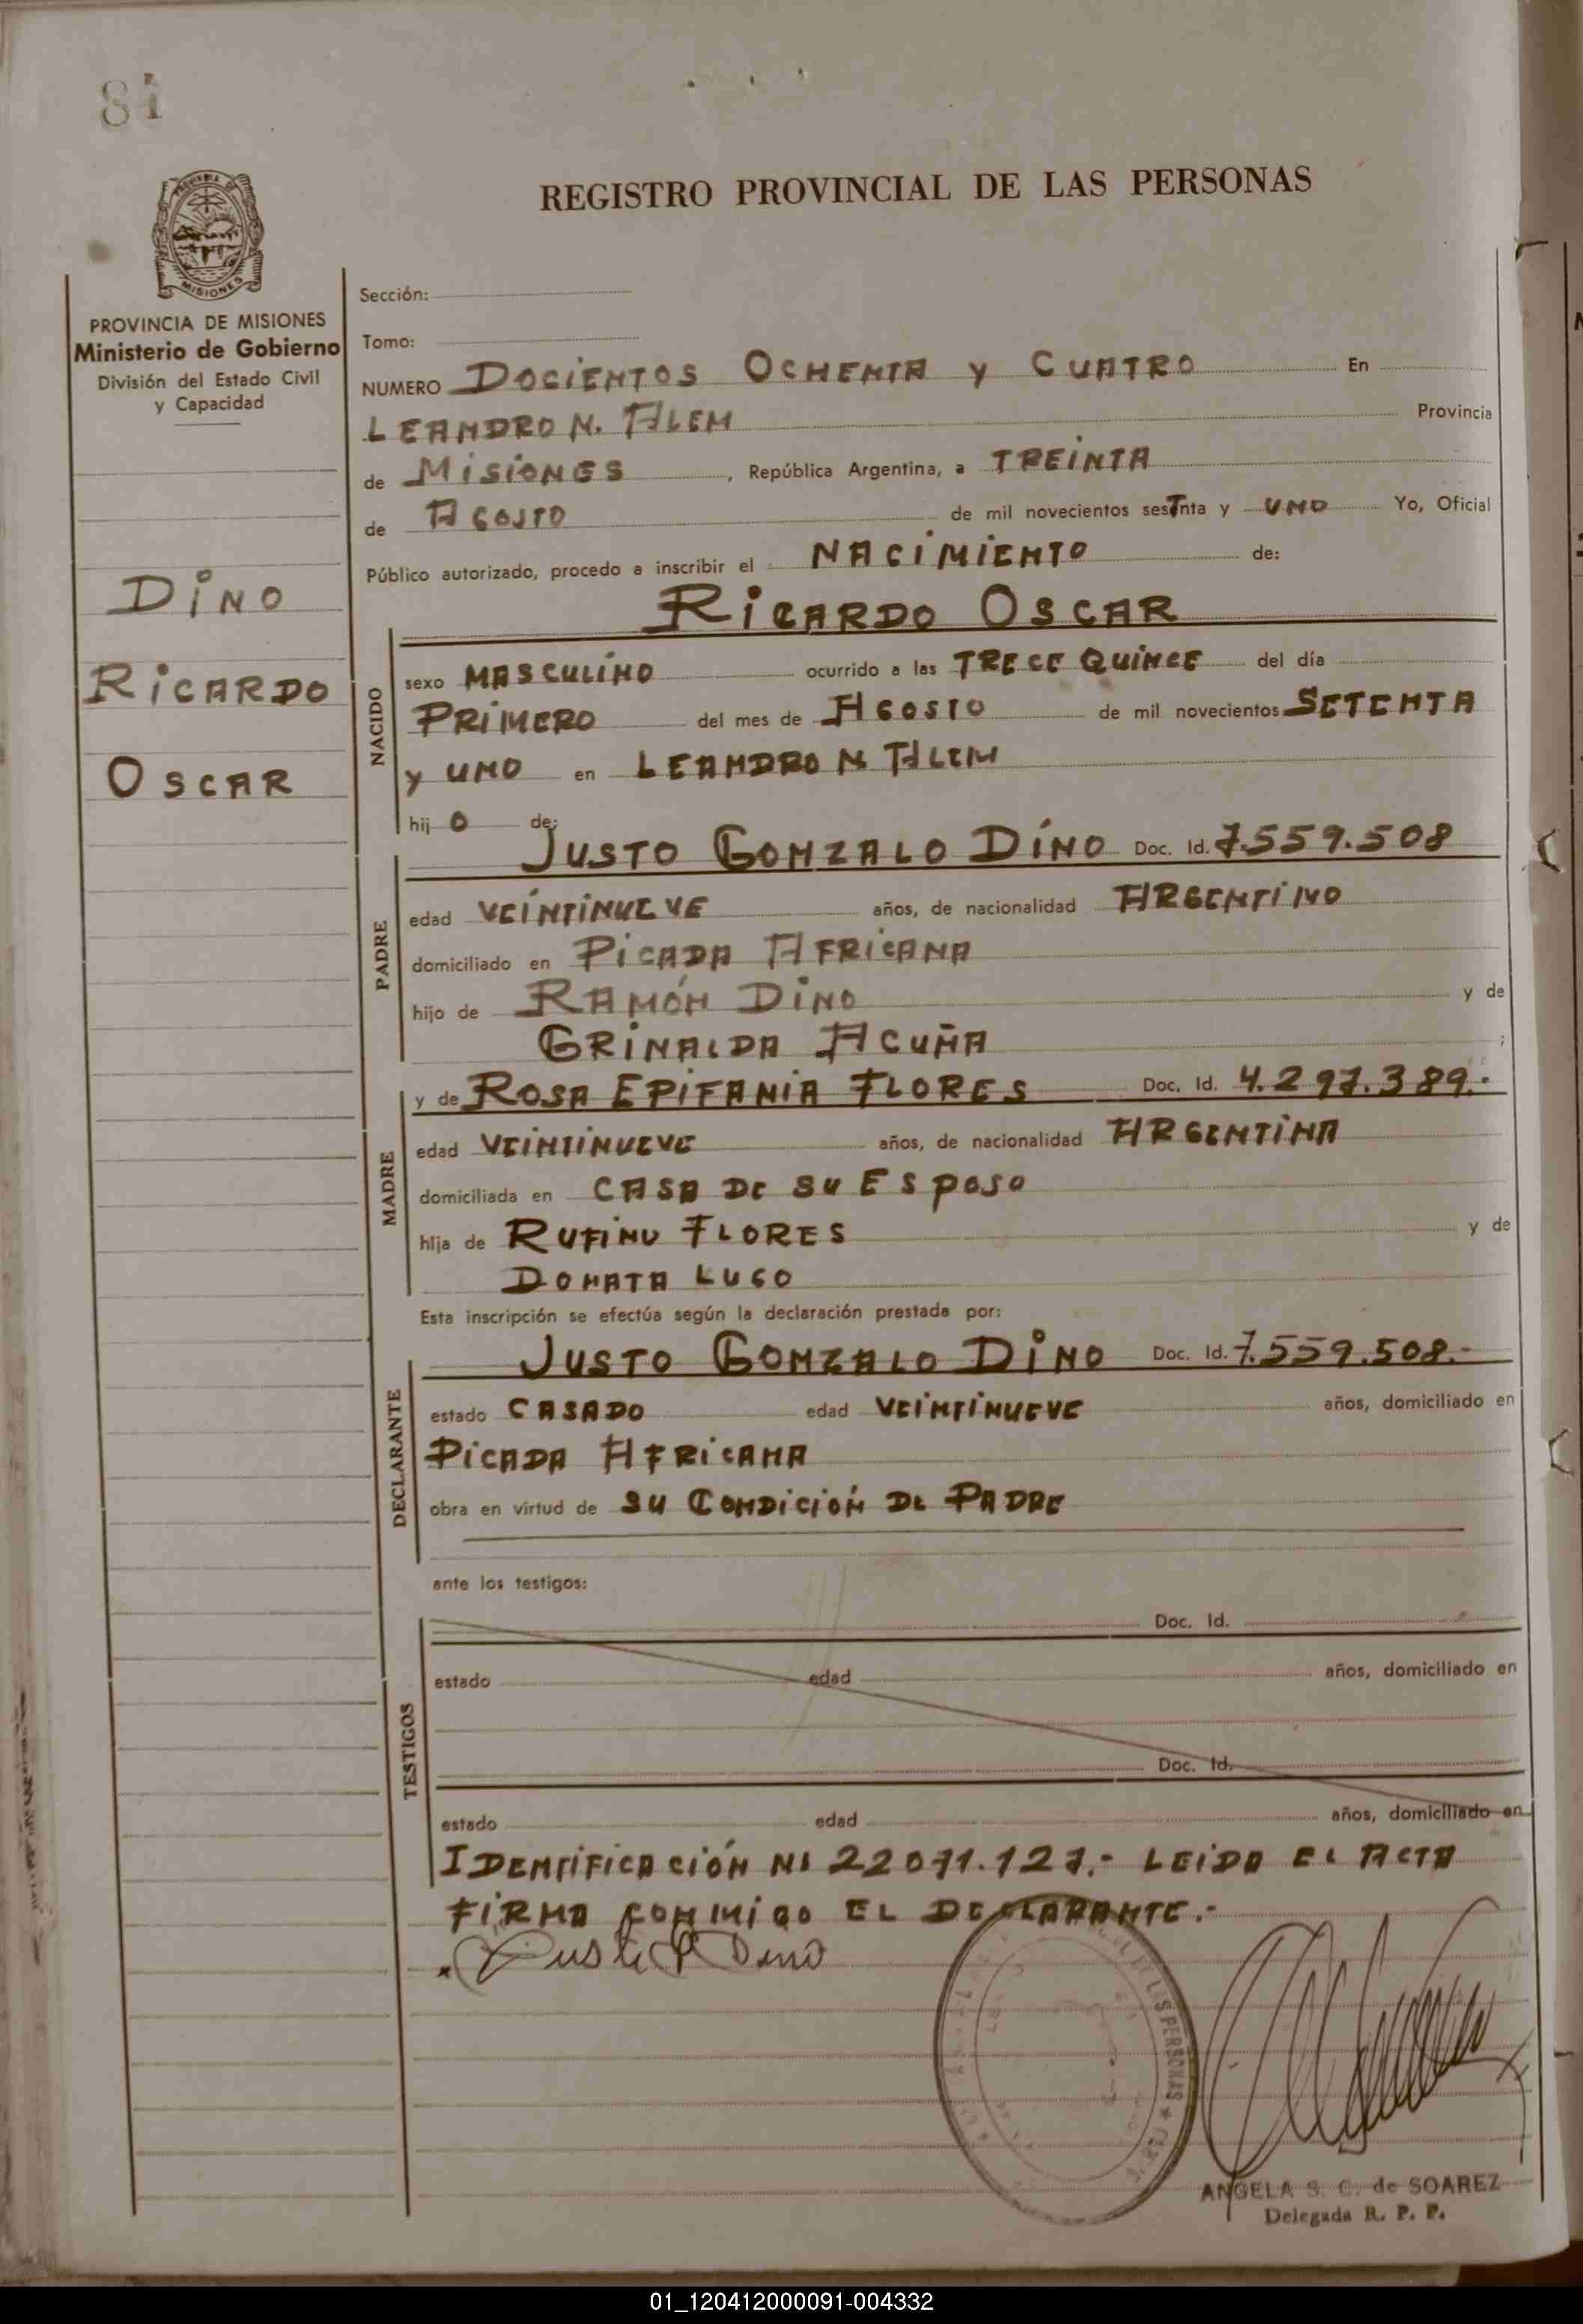 84
REGISTRO PROVINCIAL DE LAS PERSONAS
MISIONES
PROVINCIA DE MISIONES
Ministerio de Gobierno
División del Estado Civil
y Capacidad
DINO
RICARDO
OSCAR
Sección:
Tomo:
NUMERO DOCIENTOS OCHENTA y CUATRO En
LEANDRO N. ALEM Provincia
de MISIONES, República Argentina, a TREINTA
de AGOSTO de mil novecientos sesTnta y UNO Yo, Oficial
Público autorizado, procedo a inscribir el NACIMIENTO de:
RICARDO OSCAR
NACIDO
sexo MASCULINO ocurrido a las TRECE QUINCE del día
PRIMERO del mes de AGOSTO de mil novecientos SETENTA
y UNO en LEANDRO N ALEM
hij O de:
JUSTO GONZALO DINO Doc. Id. 7.559.508
PADRE
edad VEINTINUEVE años, de nacionalidad ARGENTINO
domiciliado en PICADA AFRICANA
hijo de RAMÓN DINO y de
GRINALDA ACUÑA ;
y de ROSA EPIFANIA FLORES Doc. Id. 4.297.389.-
MADRE
edad VEINTINUEVE años, de nacionalidad ARGENTINA
domiciliada en CASA DE SU ESPOSO
hija de RUFINO FLORES y de
DONATA LUGO
Esta inscripción se efectúa según la declaración prestada por:
JUSTO GONZALO DINO Doc. Id. 7.559.508.-
DECLARANTE
estado CASADO edad VEINTINUEVE años, domiciliado en
PICADA AFRICANA
obra en virtud de SU CONDICIÓN DE PADRE
ante los testigos:
Doc. Id.
TESTIGOS
estado edad años, domiciliado en
Doc. Id.
estado edad años, domiciliado en
IDENTIFICACIÓN Nº 22071.127.- LEIDA EL ACTA
FIRMA CONMIGO EL DECLARANTE.-
Justo G Dino
LAS PERSONAS
ANGELA S. C. de SOAREZ
Delegada R. P. P.
01_120412000091-004332